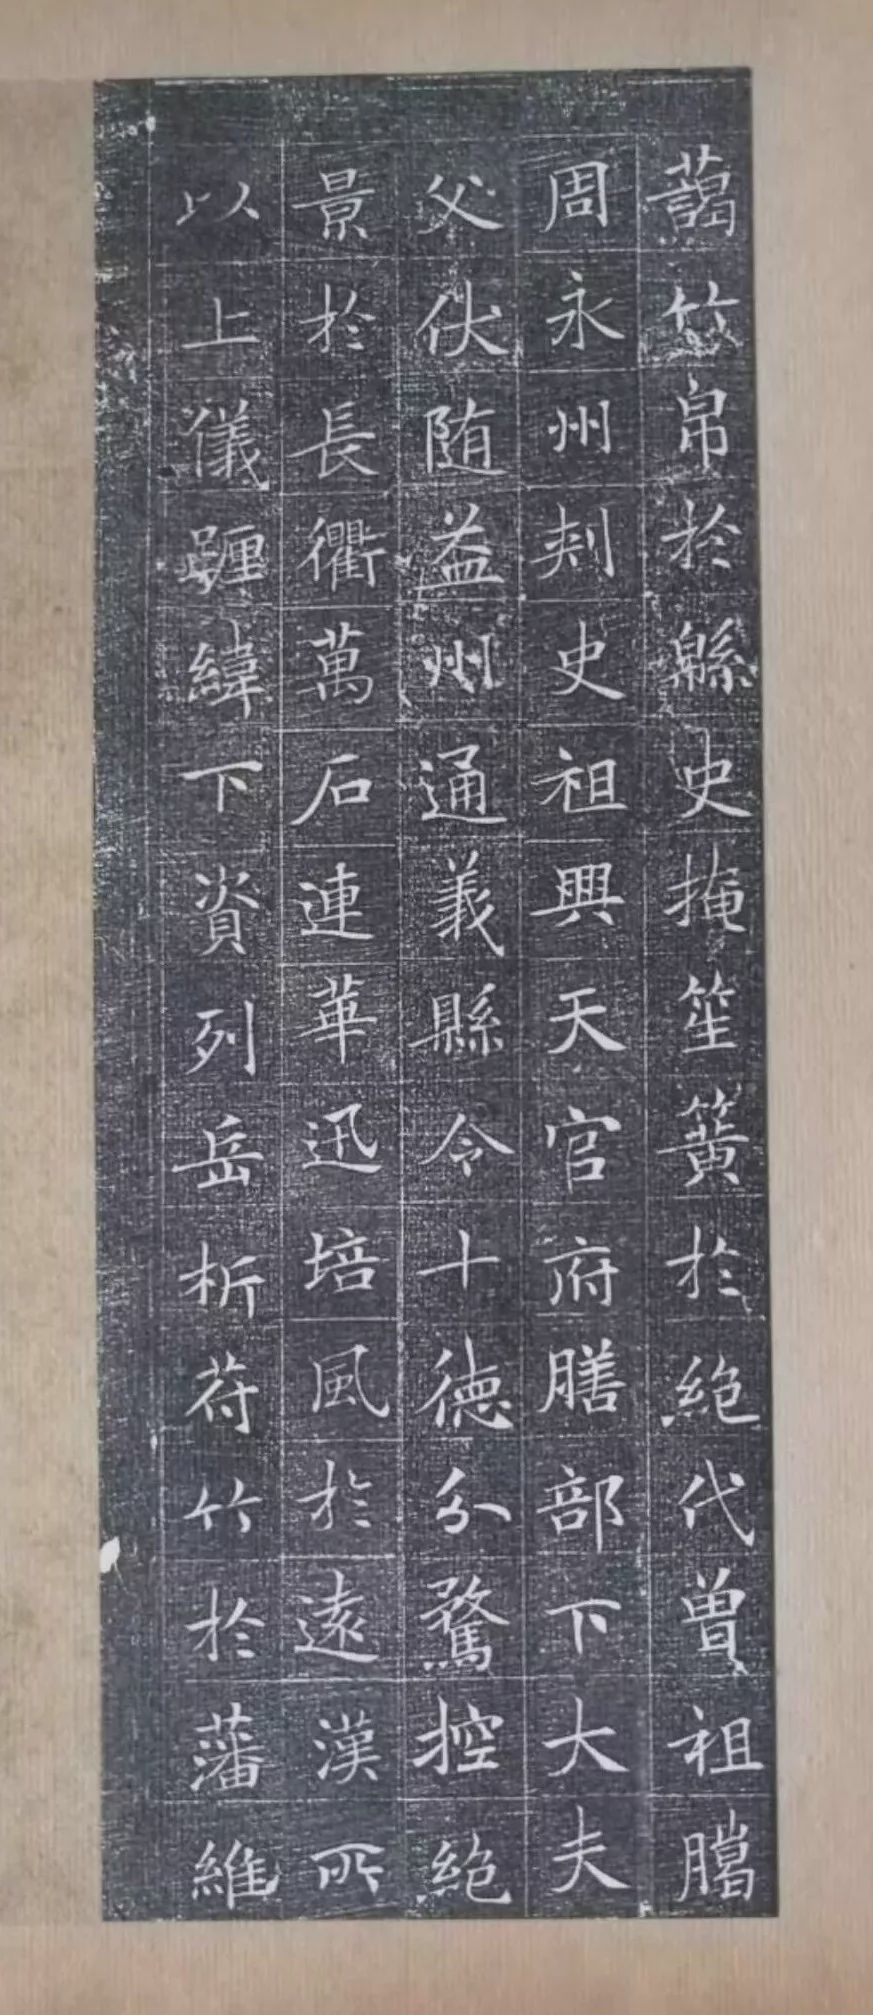 藹竹帛於緜史掩笙簧於絶代曾祖
周永州刾史祖興天官府膳部下大夫
父伏随益州通義縣令十徳分騖控絶
景於長衢萬石連華迅培風於遠漢所
以上儀躔緯下資列岳析苻竹於藩維